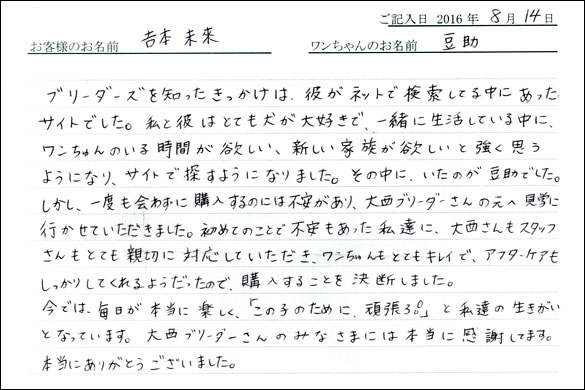 ご記入日 2016 年 8 月 14 日
お客様のお名前 吉本 未来 ワンちゃんのお名前 豆助
ブリーダーズを知ったきっかけは、彼がネットで検索してる中にあった
サイトでした。私と彼はとても犬が大好きで、一緒に生活している中に、
ワンちゃんのいる時間が欲しい、新しい家族が欲しいと強く思う
ようになり、サイトで探すようになりました。その中に、いたのが豆助でした。
しかし、一度も会わずに購入するのには不安があり、大西ブリーダーさんの元へ見学に
行かせていただきました。初めてのことで不安もあった私達に、大西さんもスタッフ
さんもとても親切に対応していただき、ワンちゃんもとてもキレイで、アフターケアも
しっかりしてくれるようだったので、購入することを決断しました。
今では、毎日が本当に楽しく、「この子のために、頑張ろう。」と私達の生きがい
となっています。大西ブリーダーさんのみなさまには本当に感謝してます。
本当にありがとうございました。